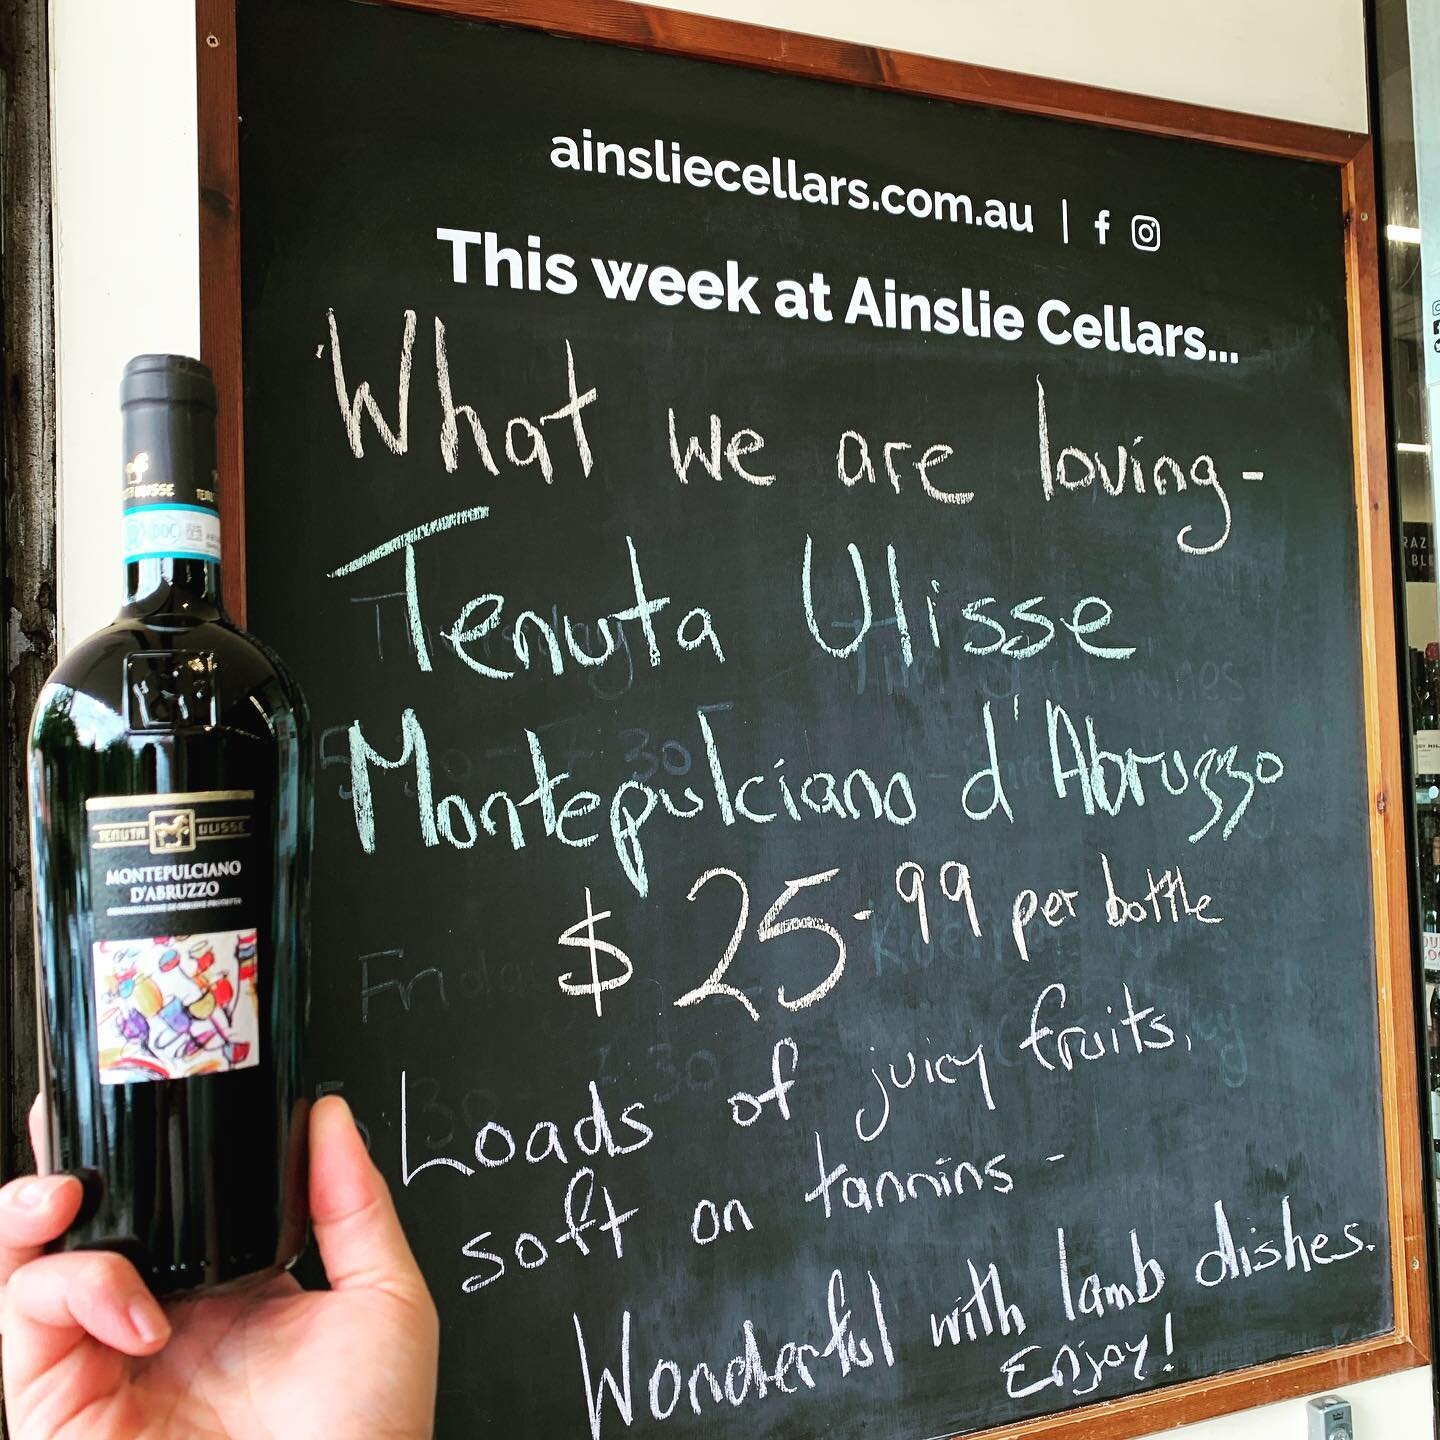 ainsliecellars.com.au | f
This week at Ainslie Cellars...
What we are loving-
Tenuta Ulisse
Montepulciano d'Abruzzo
$25.99 per bottle
Loads of juicy fruits,
soft on tannins -
Wonderful with lamb dishes.
Enjoy!
TENUTA ULISSE
MONTEPULCIANO
D'ABRUZZO